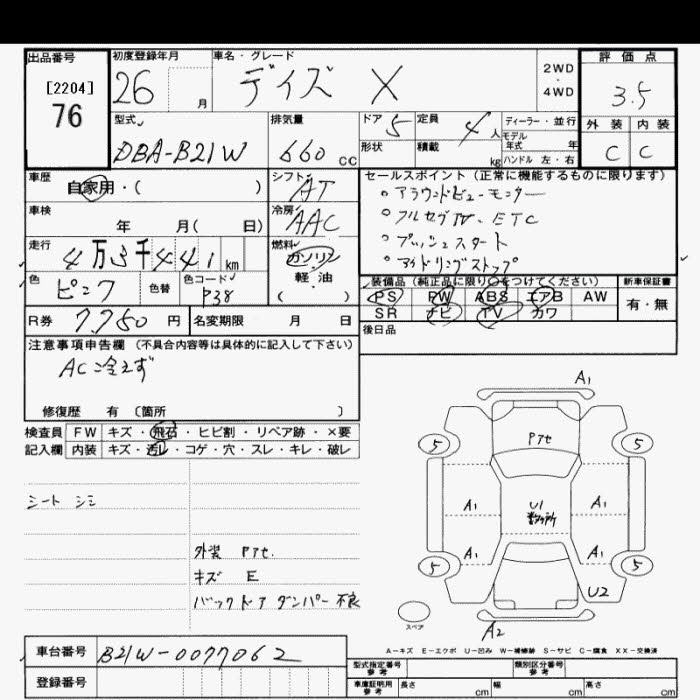 出品番号
[2204]
76
初度登録年月
26 月
車名・グレード
デイズ X
2WD
・
4WD
評価点
3.5
外装 内装
C C
型式
DBA-B21W
排気量
660 CC
ドア 5
形状
定員 4 人
積載 kg
ディーラー・並行
モデル
年式 年
ハンドル 左・右
車歴
自家用・( )
シフト
AT
セールスポイント(正常に機能するものに限ります)
○アラウンドビューモニター
○フルセグTV、ETC
○プッシュスタート
○アイドリングストップ
車検
年 月( 日)
冷房
AAC
走行
4万3千441 km
燃料
ガソリン
軽・油
( )
色
ピンク
色替
色コード
P38
装備品(純正品に限り○をつけてください)
PS PW ABS エアB AW
SR ナビ TV カワ
新車保証書
有・無
R券 7,750 円
名変期限 月 日
後日品
注意事項申告欄(不具合内容等は具体的に記入して下さい)
AC冷えず
修復歴 有 〔箇所 〕
検査員 FW キズ・飛石・ヒビ割・リペア跡・×要
記入欄 内装 キズ・汚レ・コゲ・穴・スレ・キレ・破レ
シート シミ
外装 Pﾌｾ.
キズ E
バックドアダンパー不良
A1
Pﾌｾ
5 5
A1 U1 A1
数ヶ所
A1 A1
5 5
U2
スペア
A2
A-キズ E-エクボ U-凹み W-補修跡 S-サビ C-腐食 XX-交換済
車台番号 B21W-0077062
登録番号
型式指定番号
参考
類別区分番号
参考
車庫証明用
参考
長さ cm 幅 cm 高さ cm